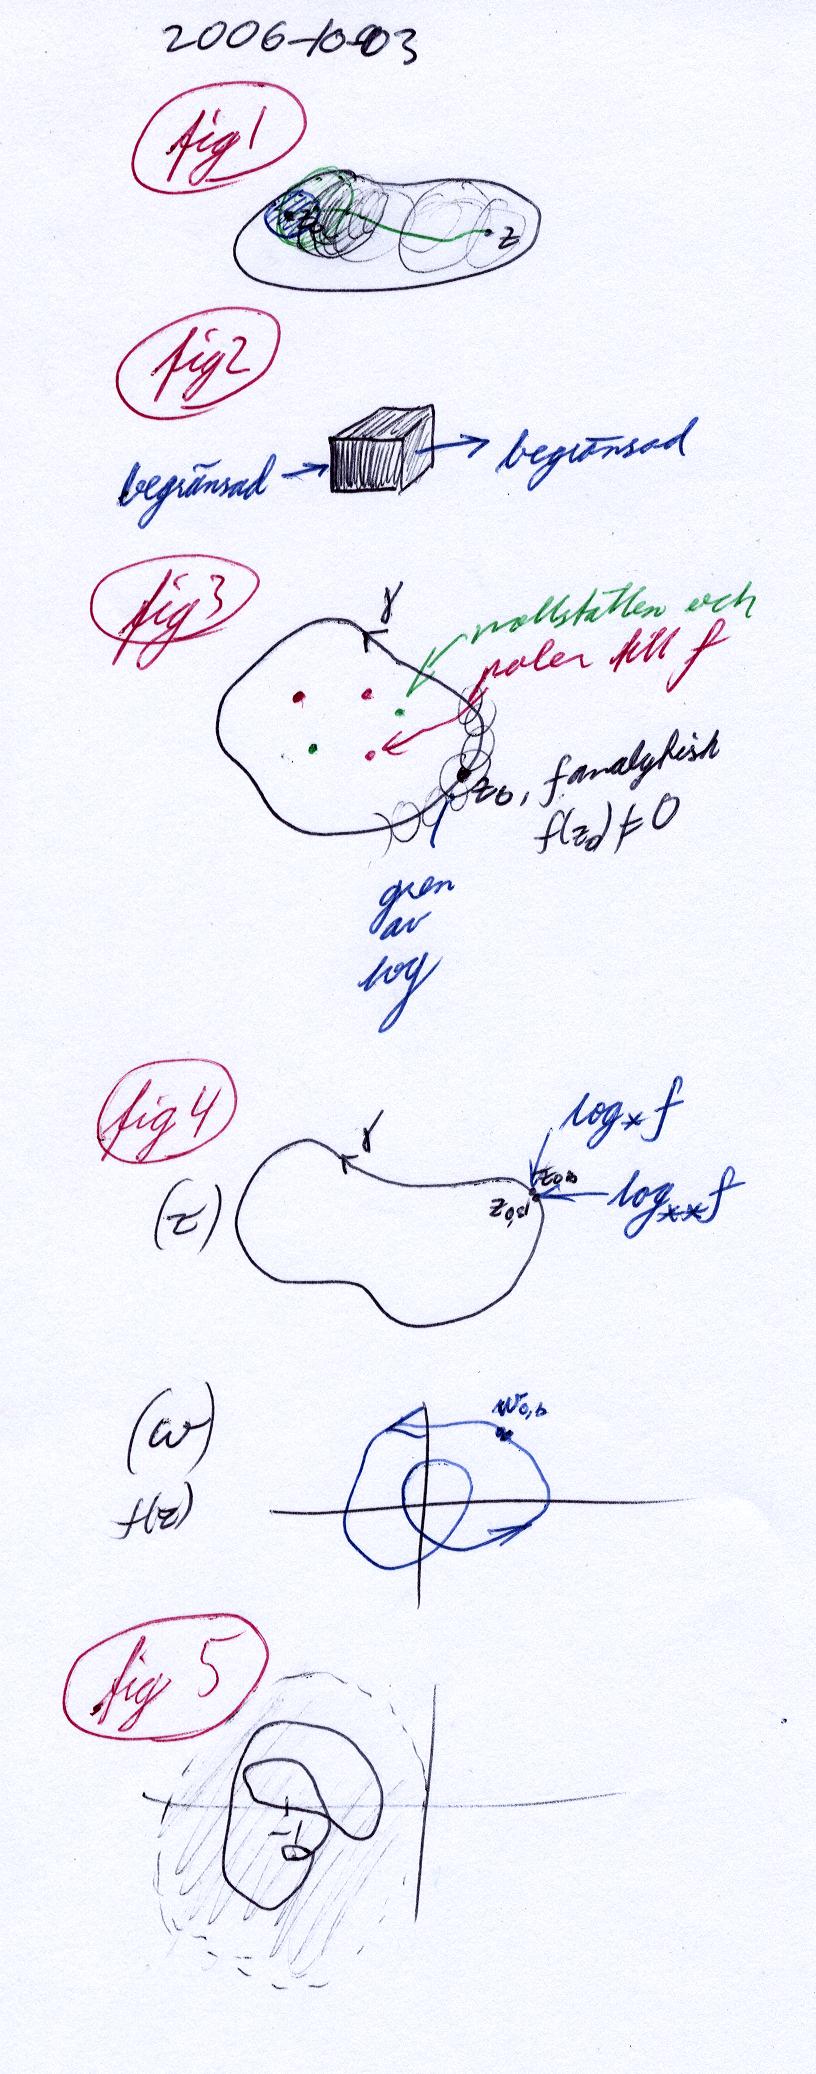 2006-10-03
fig 1
z₀
z
fig 2
begränsad → → begränsad
fig 3
γ
nollställen och
poler till f
z₀, f analytisk
f(z₀) ≠ 0
gren
av
log
fig 4
γ
log⁎ f
(z)
z₀,b
z₀,a
log⁎⁎ f
(w)
w₀,b
f(z)
fig 5